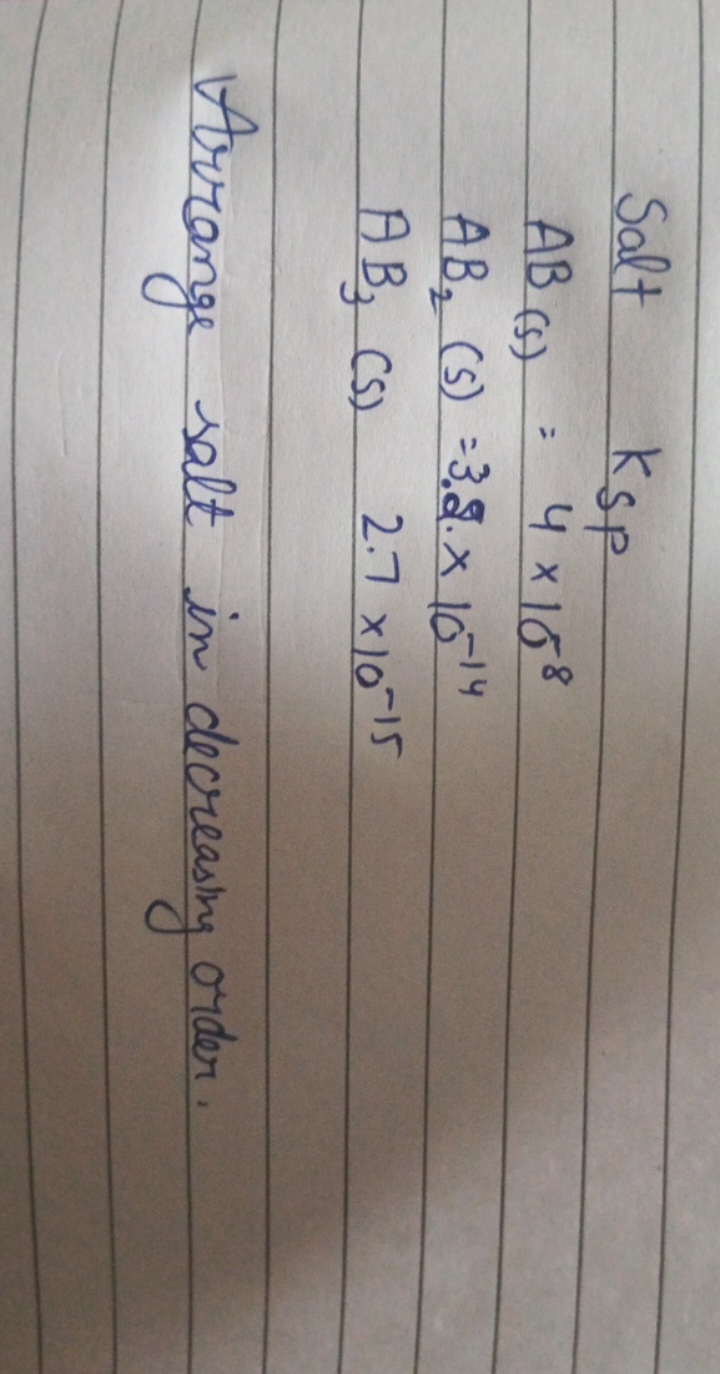 Salt Ksp
AB (s) = 4 × 10⁻⁸
AB₂ (s) = 3.2 × 10⁻¹⁴
AB₃ (s) 2.7 × 10⁻¹⁵
Arrange salt in decreasing order.